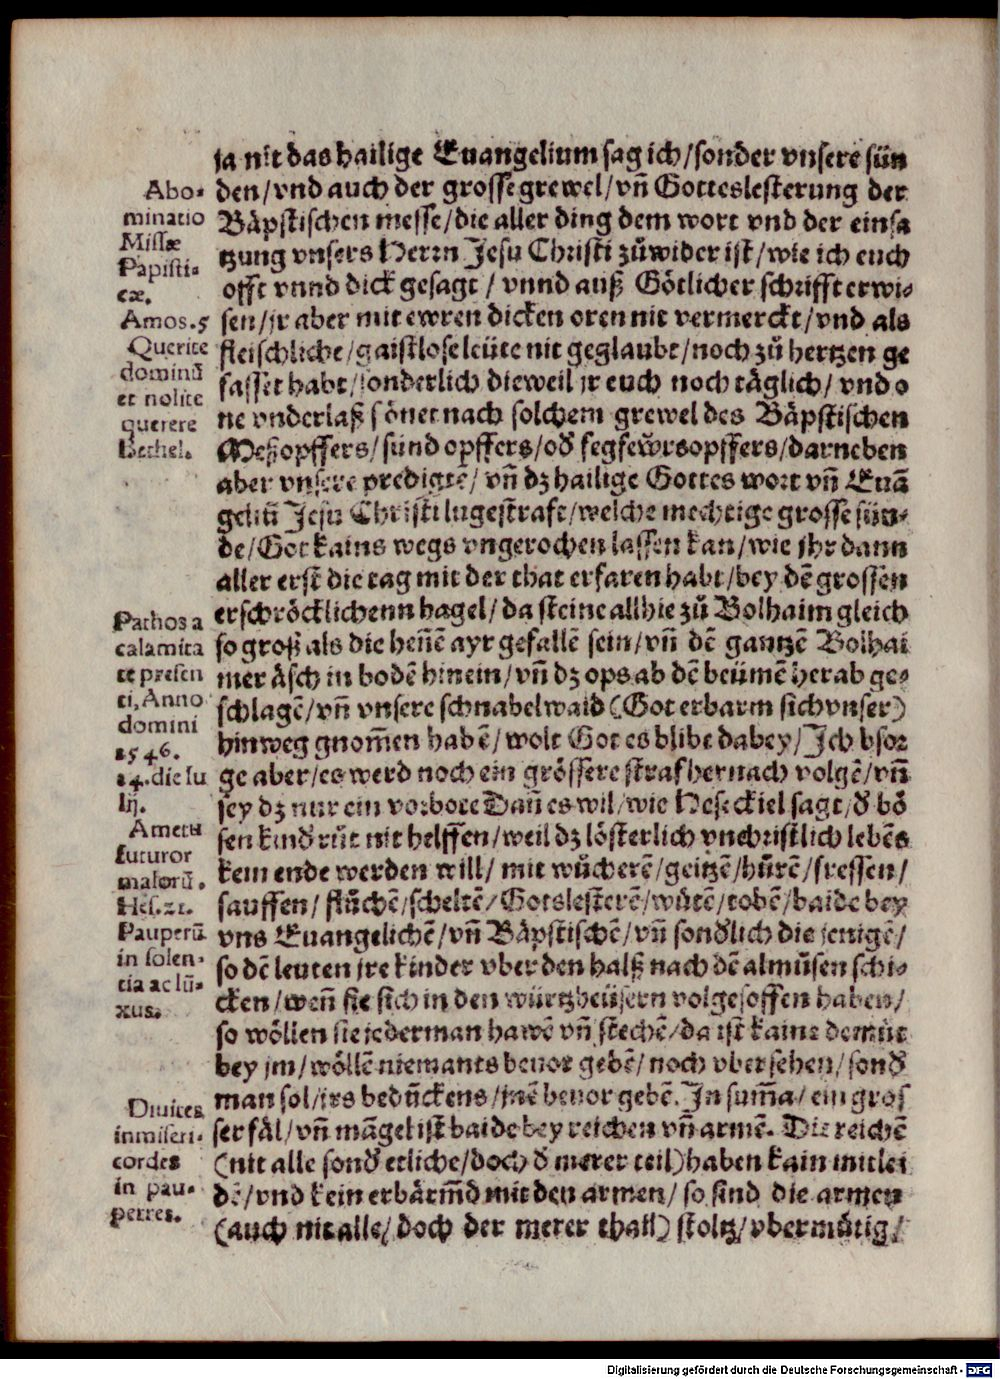 ja nit das hailige Euangelium sag ich/sonder vnsere sün
den/vnd auch der grosse grewel/vñ Gotteslesterung der
Bäpstischen messe/die aller ding dem wort vnd der einsa
tzung vnsers Herrn Jesu Christi zůwider ist/wie ich euch
offt vnnd dick gesagt / vnnd auß Götlicher schrifft erwi-
sen/jr aber mit ewren dicken oren nit vermerckt/vnd als
fleischliche/gaistlose leüte nit geglaubt/noch zů hertzen ge
fasset habt/sonderlich dieweil jr euch noch täglich/ vnd o
ne vnderlaß sönet nach solchem grewel des Bäpstischen
Meßopffers/sündopffers/od fegfewrsopffers/darneben
aber vnsere predigtē/ vñ dz hailige Gottes wort vñ Euā
geliũ Jesu Christi lugestraft/welche mechtige grosse sün-
de/Got kains wegs vngerochen lassen kan/wie jhr dann
aller erst die tag mit der that erfaren habt/bey dē grossen
erschröcklichenn hagel/da steine allhie zů Bolhaim gleich
so groß als die heñe ayr gefallē sein/vñ dē gantzē Bolhai
mer äsch in bodē hinein/vñ dz ops ab dē beümē herab ge-
schlagē/vñ vnsere schnabelwaid (Got erbarm sich vnser)
hinweg gnom̄en habē/wolt Got es blibe dabey/Jch bsor
ge aber/es werd noch ein grössere straf hernach volgē/vñ
sey dz nur ein vorbote Dañ es wil/wie Heseckiel sagt/d bö
sen kind růt nit helffen/weil dz lösterlich vnchristlich lebēs
kein ende werden will/ mit wůcherē/geitzē/hůrē/fressen/
sauffen/ flůchē/scheltē/Gotslesterē/wütē/tobē/baide bey
vns Euangelichē/vñ Bäpstischē/vñ sondlich die jenigē/
so dē leuten jre kinder vber den halß nach dē almůsen schi-
cken/weñ sie sich in den würtzheüsern volgesoffen haben/
so wöllen sie jederman hawē vñ stechē/da ist kaine demůt
bey jm/wöllē niemants beuor gebē/ noch vbersehen/sond
man sol/jrs bedunckens/jnē beuor gebē. Jn sum̄a/ ein gros
ser fäl/vñ mägel ist baide bey reichen vñ armē. Die reichē
(nit alle sond etliche/doch d merer teil)haben kain mitlei
dē/vnd kein erbärm̄d mit den armen/ so sind die armen
(auch nit alle/ doch der merer thail) stoltz/ vbermütig/
Abo-
minatio
Missæ
Papisti-
cæ.
Amos.5
Querite
dominũ
et nolite
querere
Bethel.
Pathos a
calamita
te presen
ti, Anno
domini
1546.
14. die Iu
lij.
Ametu
futuror
malorũ.
Hes.21.
Pauperũ
in solen-
tia ac lũ-
xus.
Diuites
inmiseri-
cordes
in pau-
perres.
Digitalisierung gefördert durch die Deutsche Forschungsgemeinschaft - DFG